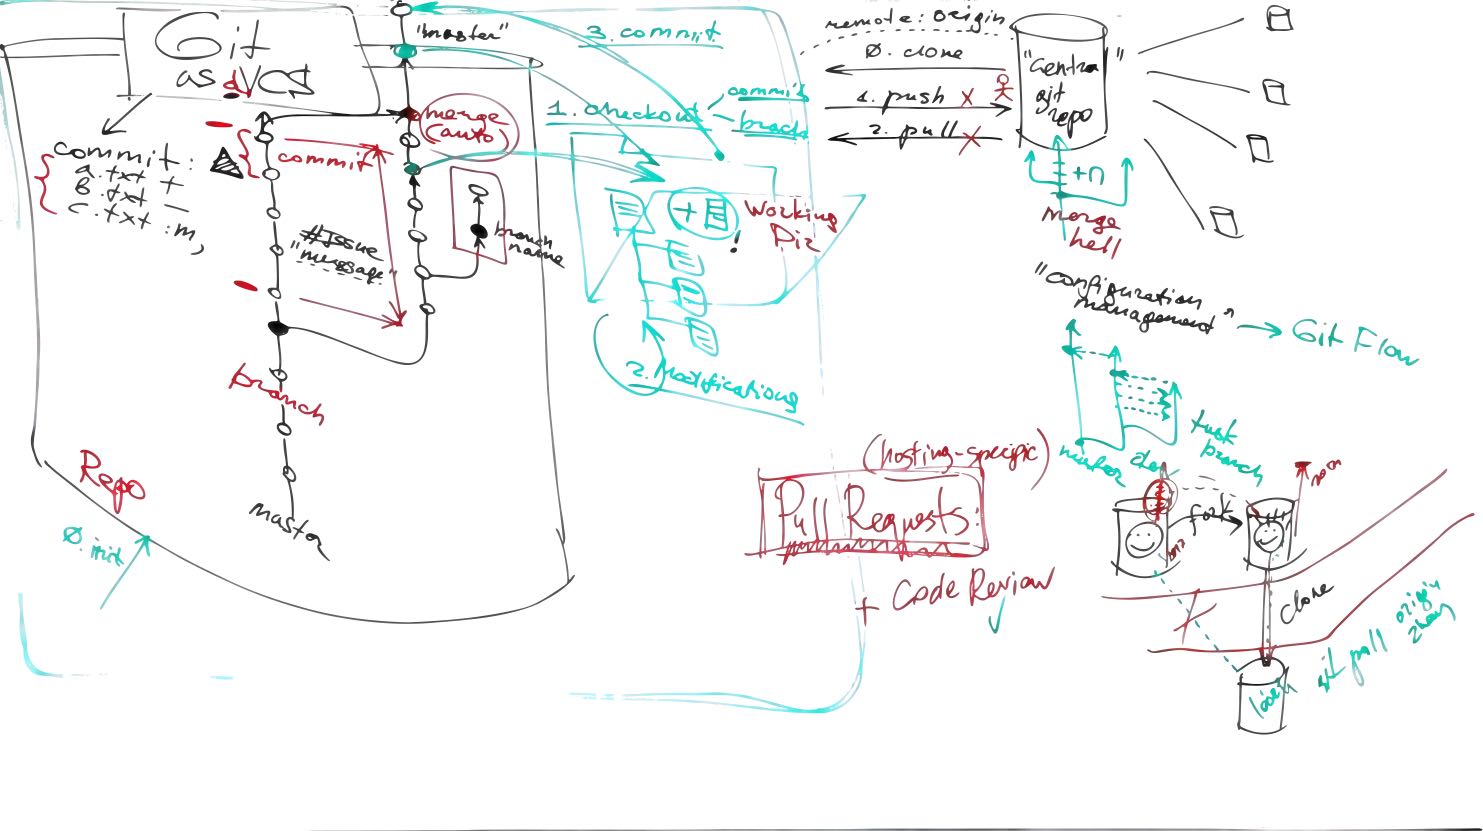 Git
as dVCS
commit:
a.txt +
B.txt —
c.txt :m,
commit
#Issue
"message"
branch
master
Repo
0. init
"master"
merge
(auto)
branch
name
3. commit
1. checkout
commit
branch
Working
Dir
+
!
2. Modifications
remote: origin
0. clone
1. push
2. pull
"Central"
git
repo
+n
merge
hell
"configuration
management"
Git Flow
master
dev
task
branch
(hosting-specific)
Pull Requests:
+ Code Review
fork
clone
git pull origin